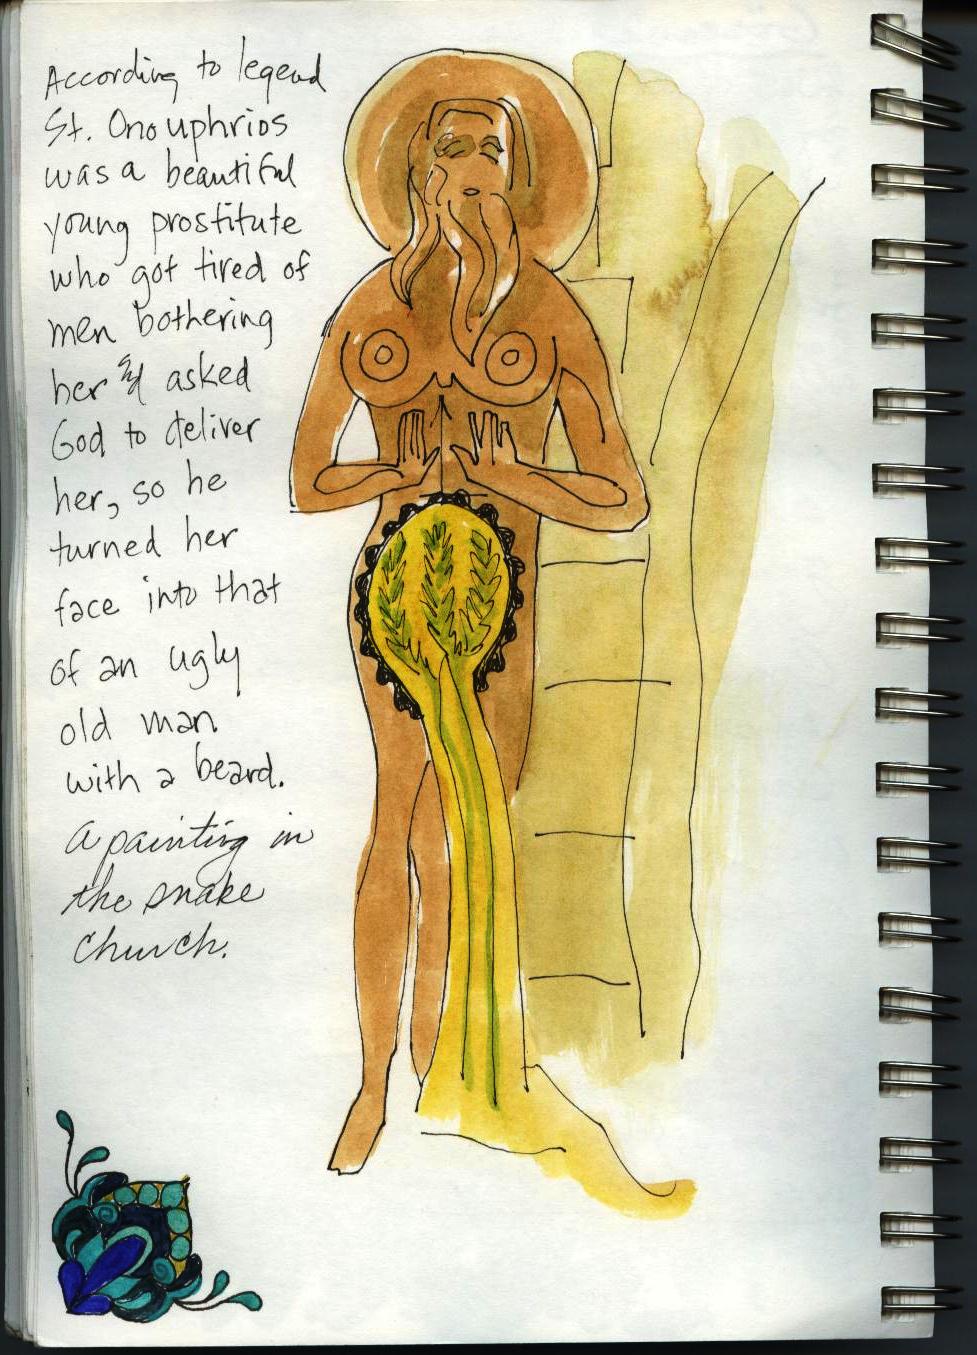 According to legend
St. Onouphrios
was a beautiful
young prostitute
who got tired of
men bothering
her and asked
God to deliver
her, so he
turned her
face into that
of an ugly
old man
with a beard.
A painting in
the snake
church.